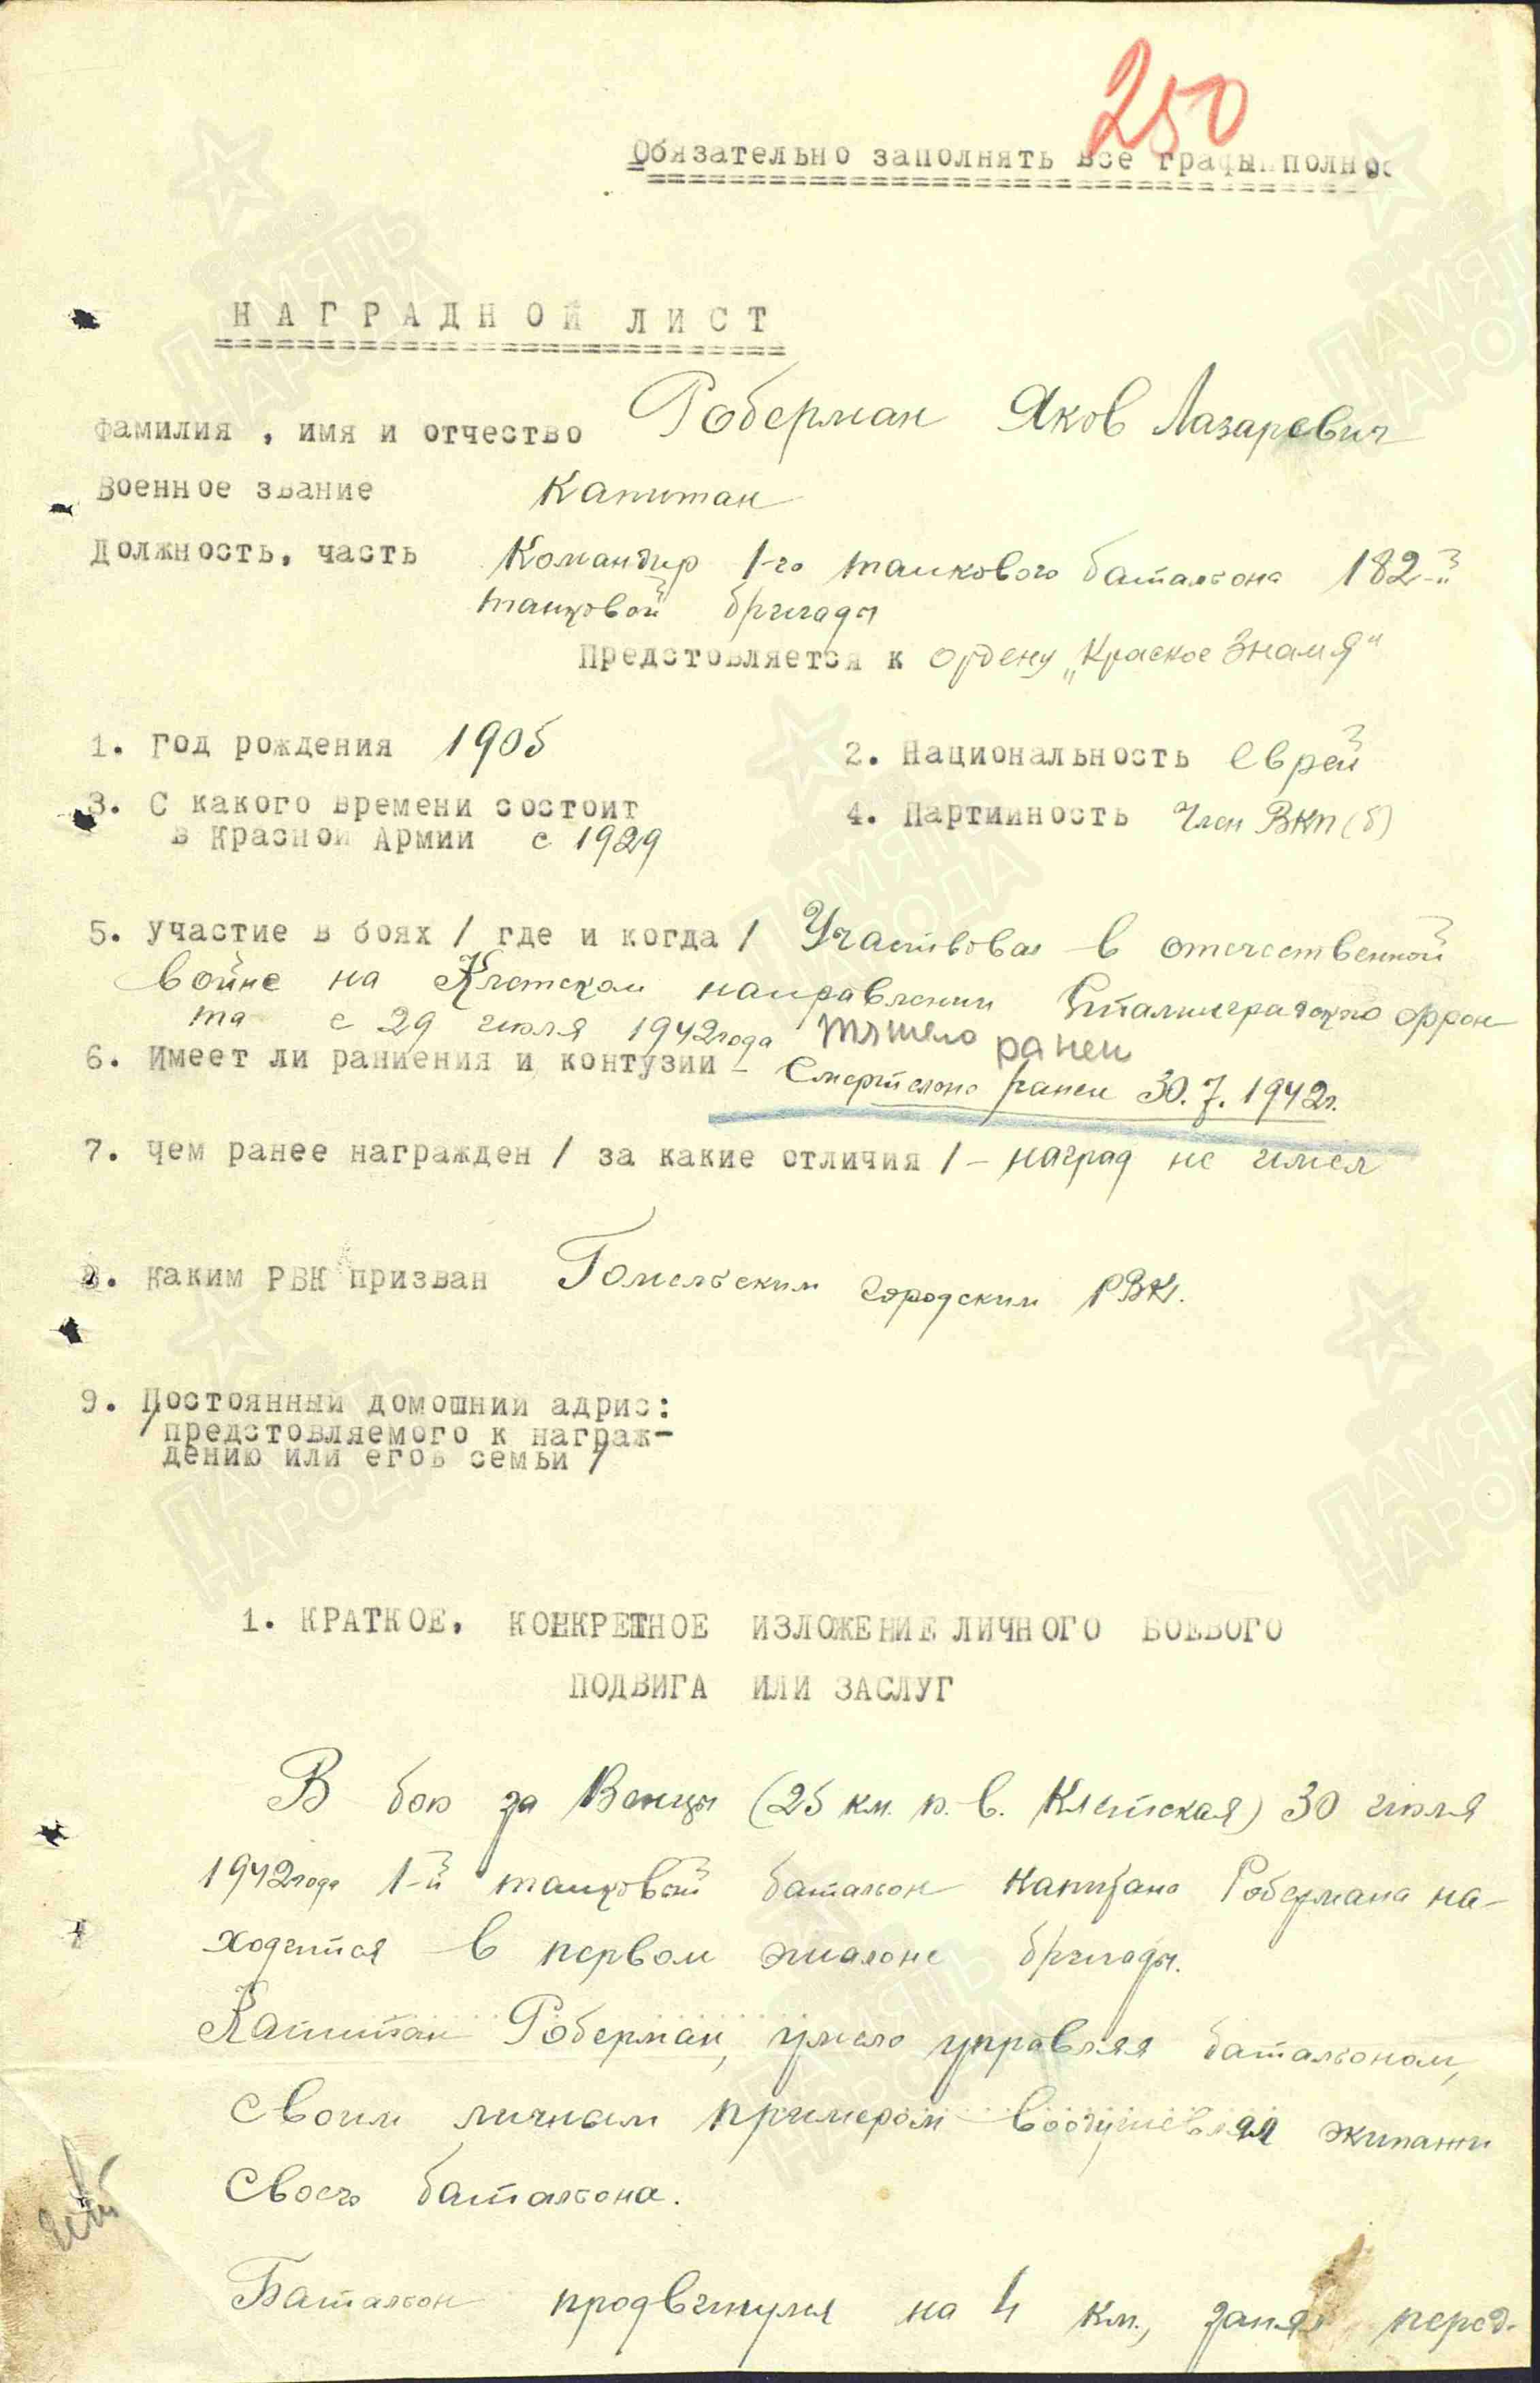 250
Обязательно заполнять все графы полнос
НАГРАДНОЙ ЛИСТ
Фамилия, имя и отчество Роберман Яков Лазаревич
Военное звание Капитан
Должность, часть Командир 1-го танкового баталиона 182-й
танковой бригады
Предстовляется к ордену „Красное Знамя"
1. Год рождения 1905
2. Национальность еврей
3. С какого времени состоит
в Красной Армии с 1929
4. Партийность Член ВКП(б)
5. Участие в боях / где и когда / Участвовал в отечественной
войне на Клетском направлении Сталинградского фрон
та с 29 июля 1942 года
тяжело ранен
6. Имеет ли раниения и контузии - Смертельно ранен 30.7.1942г.
7. Чем ранее награжден / за какие отличия / - наград не имел
8. Каким РВК призван Гомельским городским РВК.
9. Постоянный домошний адрис:
/предстовляемого к награж-
дению или егов семьи /
1. КРАТКОЕ, КОНКРЕТНОЕ ИЗЛОЖЕНИЕ ЛИЧНОГО БОЕВОГО
ПОДВИГА ИЛИ ЗАСЛУГ
В бою за Венцы (25 км. ю.-в. Клетская) 30 июля
1942 года 1-й танковый баталион Капитана Робермана на-
ходится в первом эшалоне бригады.
Капитан Роберман, умело управляя баталионом,
своим личным примером воодушевлял экипажи
своего баталиона.
Баталион продвинулся на 4 км., занял перед-
ПАМЯТЬ
НАРОДА